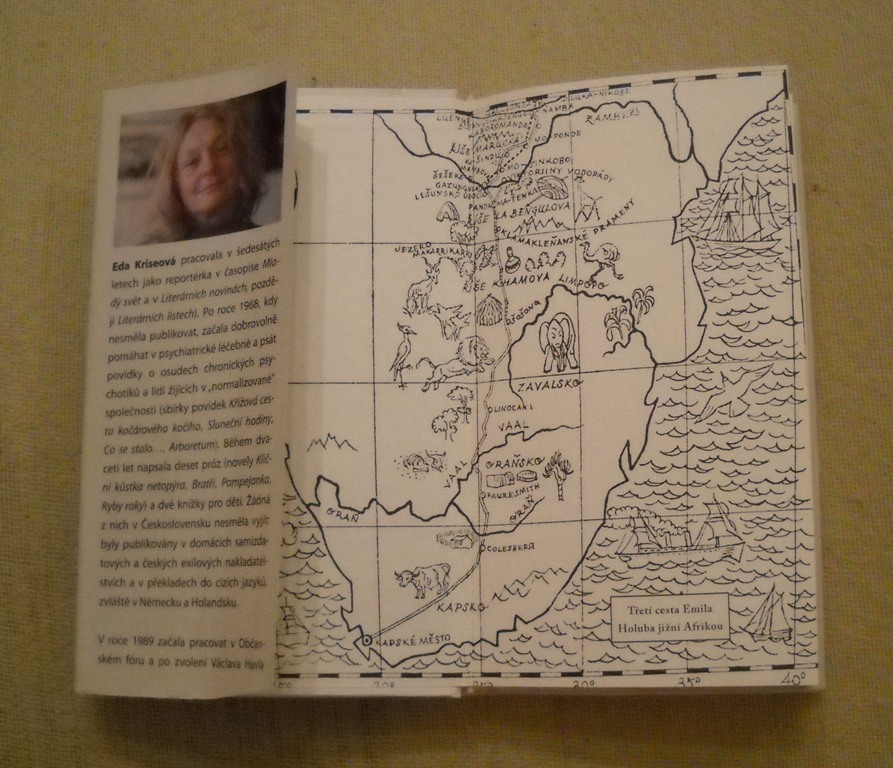 Eda Kriseová pracovala v šedesátých
letech jako reportérka v časopise Mla-
dý svět a v Literárních novinách, pozdě-
ji Literárních listech). Po roce 1968, kdy
nesměla publikovat, začala dobrovolně
pomáhat v psychiatrické léčebně a psát
povídky o osudech chronických psy-
chotiků a lidí žijících v „normalizované“
společnosti (sbírky povídek Křížová ces-
ta kočárového kočího, Sluneční hodiny,
Co se stalo…, Arboretum). Během dva-
ceti let napsala deset próz (novely Klíč-
ní kůstka netopýra, Bratři, Pompejanka,
Ryby raky) a dvě knížky pro děti. Žádná
z nich v Československu nesměla vyjít:
byly publikovány v domácích samizda-
tových a českých exilových nakladatel-
stvích a v překladech do cizích jazyků,
zvláště v Německu a Holandsku.
V roce 1989 začala pracovat v Občan-
ském fóru a po zvolení Václava Havla
ZAMBEZI
ŘÍŠE MARUCKÁ
MOPONDE
ŠEŠEKE
GAZUNGULA
LEŠUNSKÉ ÚDOLÍ
VIKTORIINY VODOPÁDY
PANDA-MA-TENKA
ŘÍŠE LA BENGULOVA
KLAMAKLEŇANSKÉ PRAMENY
JEZERO
MAKARRIKARRI
ŘÍŠE KHAMOVA
LIMPOPO
ZAVALSKO
LINOCANI
VAAL
VAAL
ORAŇSKO
FAURESMITH
ORAŇ
ORAŇ
COLESBERG
KAPSKO
KAPSKÉ MĚSTO
Třetí cesta Emila
Holuba jižní Afrikou
20° 25° 30° 35° 40°